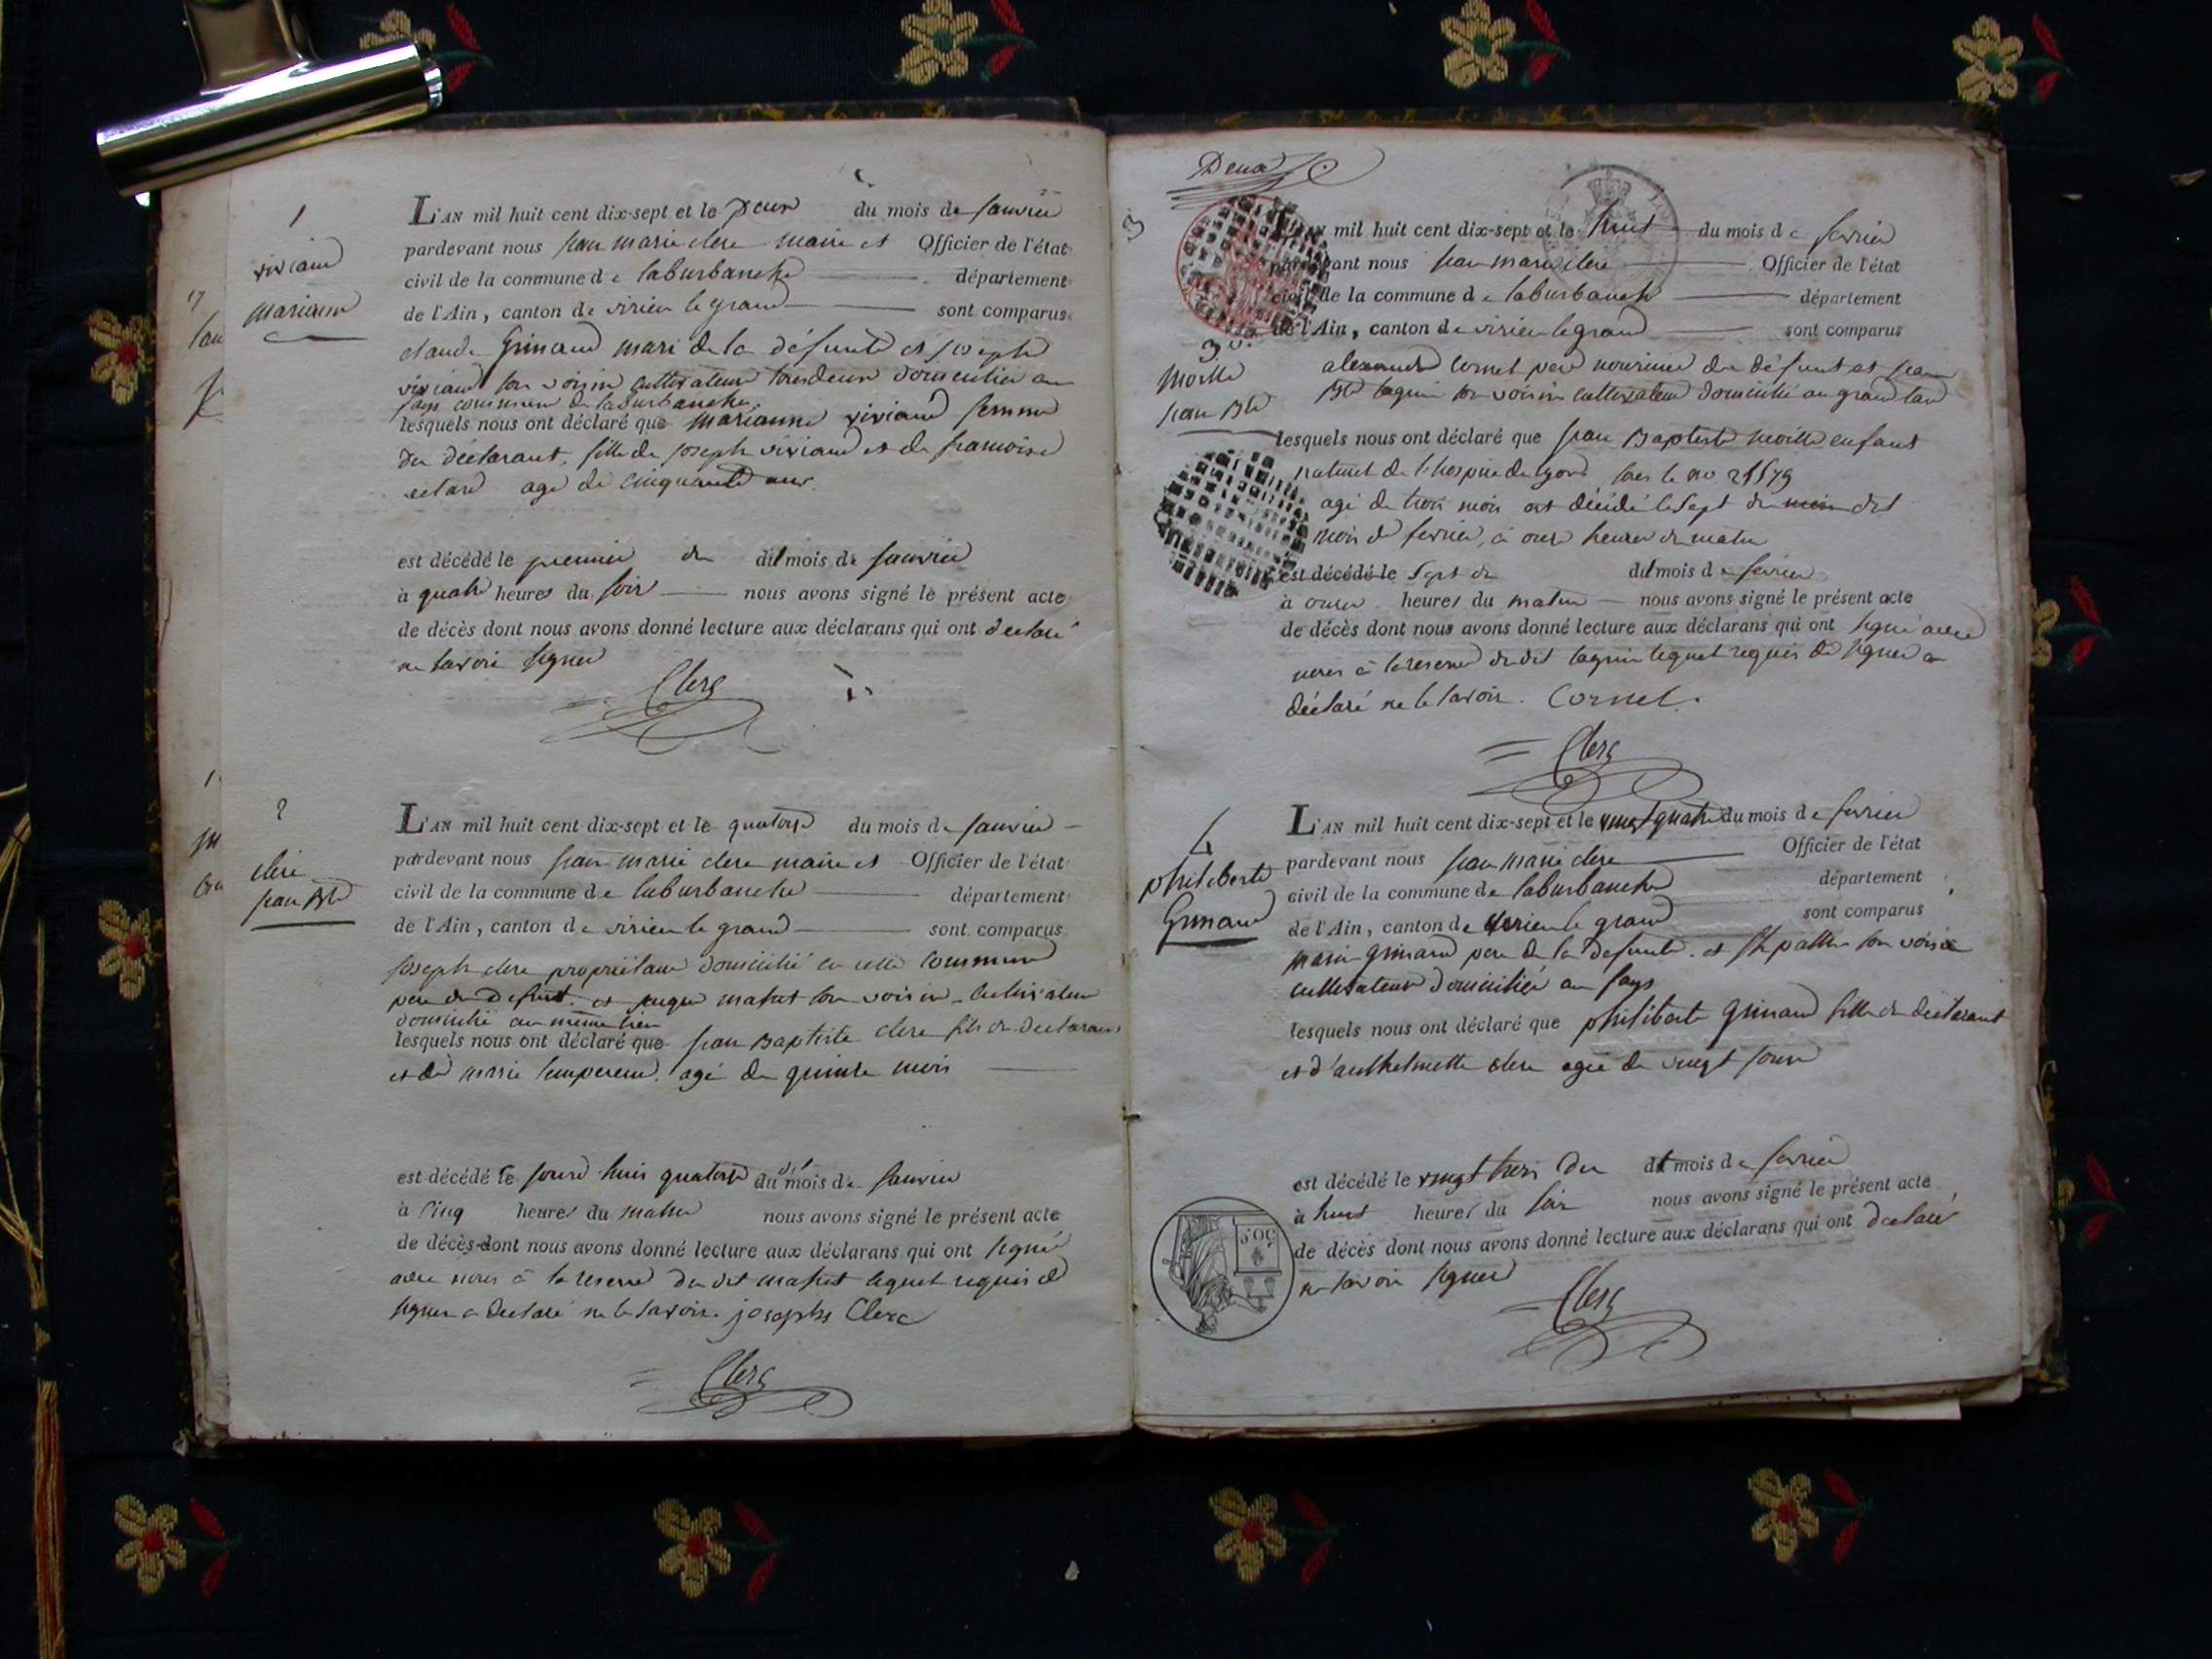 1
viviand
marianne
L'AN mil huit cent dix-sept et le deux du mois de janvier
pardevant nous jean marie clerc maire et Officier de l'état
civil de la commune de laburbanche département
de l'Ain, canton de virieu le grand sont comparus
claude Grinand mari de la défunte et joseph
viviand son voisin cultivateur domicilié au
commune de laburbanche
lesquels nous ont déclaré que marianne viviand femme
du déclarant, fille de joseph viviand et de francoise
agé de cinquante ans
est décédé le premier du dit mois de janvier
à quatre heures du soir nous avons signé le présent acte
de décès dont nous avons donné lecture aux déclarans qui ont declaré
ne savoir signer
Clerc
2
clerc
jean Bte
L'AN mil huit cent dix-sept et le quatorze du mois de janvier
pardevant nous jean marie clerc maire et Officier de l'état
civil de la commune de laburbanche département
de l'Ain, canton de virieu le grand sont comparus
joseph clerc propriétaire domicilié en cette commune
pere du defunt et son voisin cultivateur
domicilié au même lieu
lesquels nous ont déclaré que jean Baptiste clerc fils du declarant
et de marie lempereur agé de quinze mois
est décédé le jourd huis quatorze du dit mois de janvier
à cinq heures du matin nous avons signé le présent acte
de décès dont nous avons donné lecture aux déclarans qui ont signé
avec nous à la reserve du dit lequel requis de
signer a declaré ne le savoir. joseph Clerc
Clerc
Deux
3
L'AN mil huit cent dix-sept et le huit du mois de fevrier
pardevant nous jean marie clerc Officier de l'état
civil de la commune de laburbanche département
de l'Ain, canton de virieu le grand sont comparus
3
jean Bte
alexandre Cornet pere nouricier du défunt et jean
Bte son voisin cultivateur domicilié au
lesquels nous ont déclaré que jean Baptiste enfant
naturel de l'hospice de lyon sous le no 21579
agé de trois mois est décédé le sept du mois dit
mois de fevrier, à onze heures du matin
est décédé le sept du dit mois de fevrier
à onze heures du matin nous avons signé le présent acte
de décès dont nous avons donné lecture aux déclarans qui ont signé avec
nous à la reserve du dit lequel requis de signer a
déclaré ne le savoir. Cornet.
Clerc
4
philiberte
Grinand
L'AN mil huit cent dix-sept et le vingt quatre du mois de fevrier
pardevant nous jean marie clerc Officier de l'état
civil de la commune de laburbanche département
de l'Ain, canton de virieu le grand sont comparus
grinand pere de la defunte et son voisin
cultivateurs domiciliés au
lesquels nous ont déclaré que philiberte Grinand fille du declarant
et d'anthelmette clerc agée de vingt jours
est décédé le vingt trois du dit mois de fevrier
à huit heures du soir nous avons signé le présent acte
de décès dont nous avons donné lecture aux déclarans qui ont declaré
ne savoir signer
Clerc